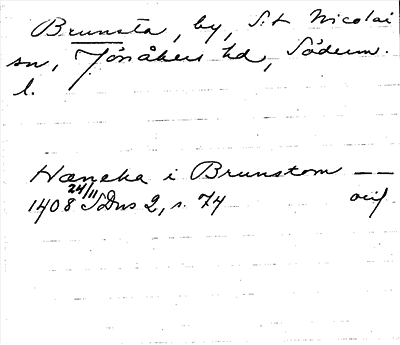 Brunsta, by, S:t Nicolai
sn, Jönåkers hd, Söderm.
l.
Hæneka i Brunstom — —
1408 24/11 SDns 2, s. 74 orig